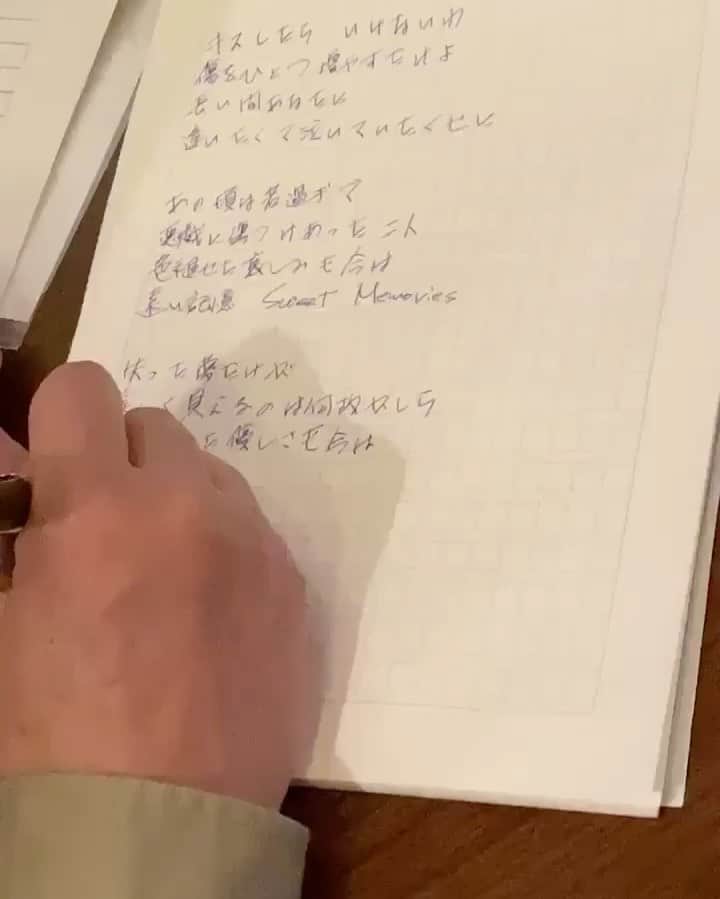 キスしたら いけないわ
傷をひとつ増やすだけよ
長い間あなたに
逢いたくて泣いていたくせに
あの頃は若過ぎて
悪戯に傷つけあった二人
色褪せた哀しみも今は
遠い記憶 Sweet Memories
失った夢だけが
く見えるのは何故かしら
た優しさも今は